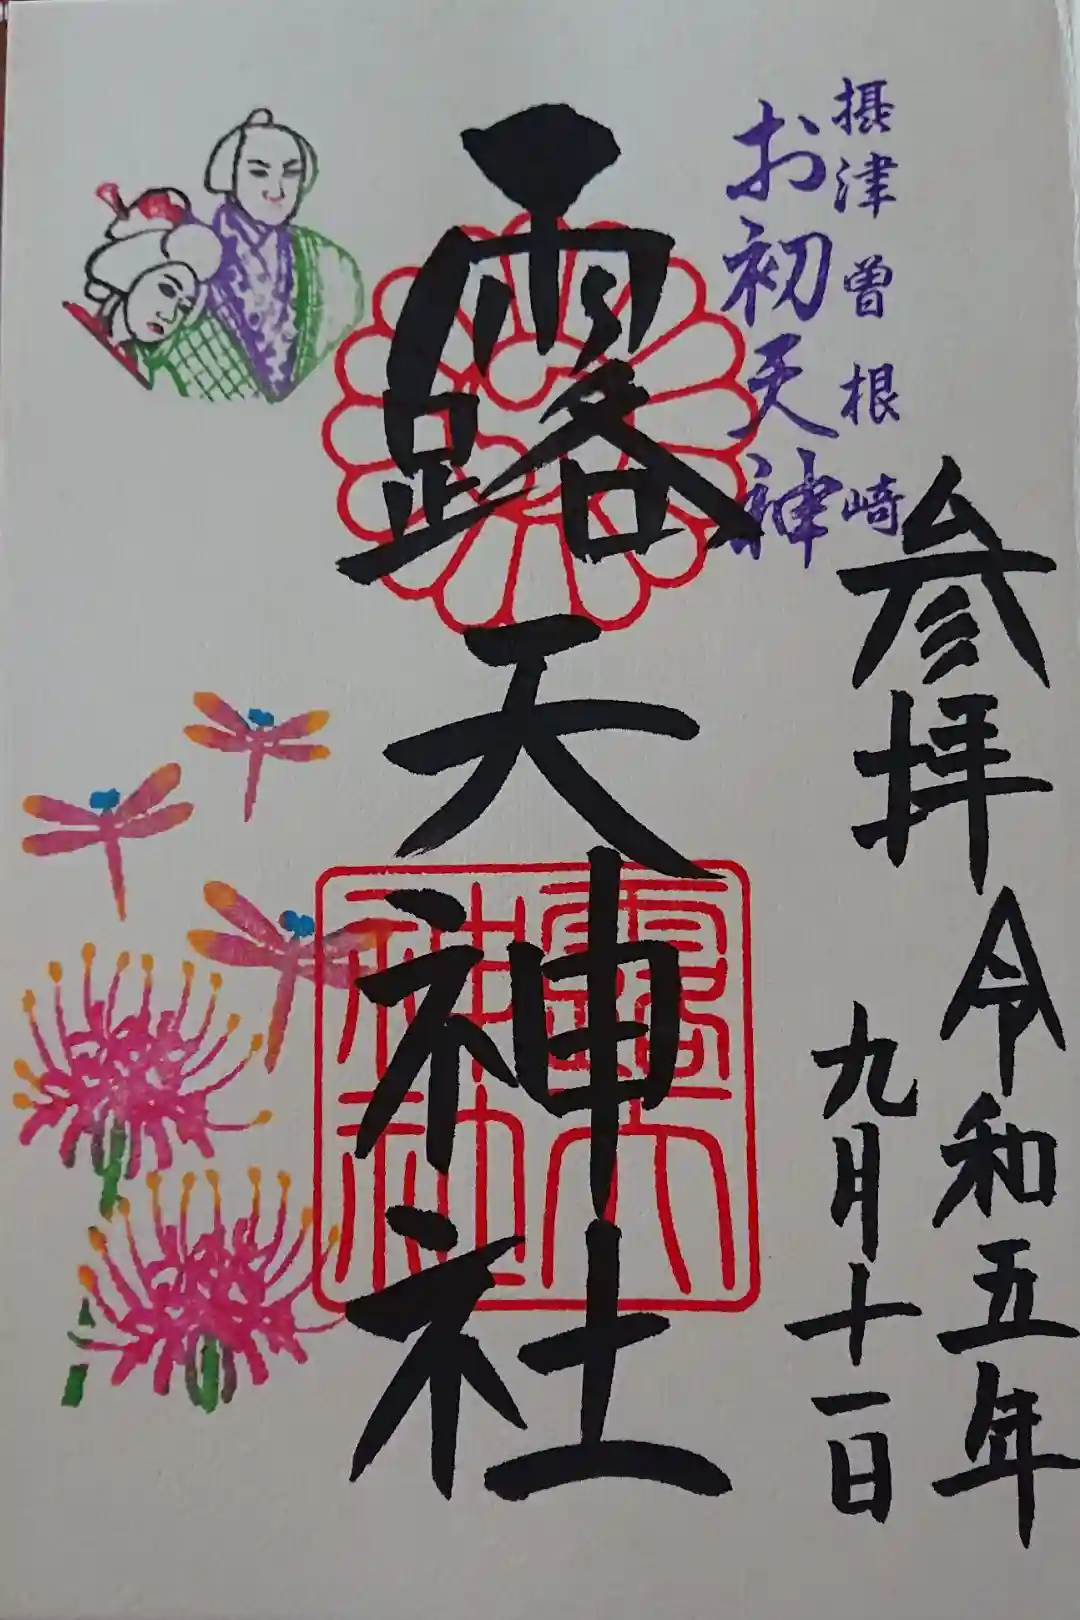 摂津曽根崎
お初天神
参拝 令和五年
九月十一日
露天神社
露天
神社